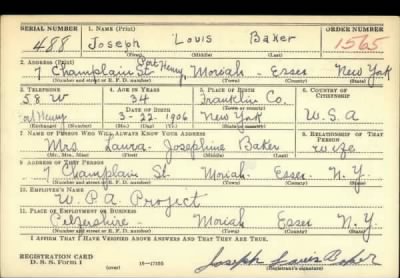 SERIAL NUMBER 1. NAME (Print) ORDER NUMBER
488 Joseph Louis Baker 1565
(First) (Middle) (Last)
2. ADDRESS (Print)
7 Champlain St Port Henry, Moriah - Essex New York
(Number and street or R. F. D. number) (Town) (County) (State)
3. TELEPHONE 4. AGE IN YEARS 5. PLACE OF BIRTH 6. COUNTRY OF CITIZENSHIP
58 W 34 Franklin Co.
DATE OF BIRTH (Town or county)
Port Henry 3-22-1906 New York U.S.A
(Exchange) (Number) (Mo.) (Day) (Yr.) (State or country)
7. NAME OF PERSON WHO WILL ALWAYS KNOW YOUR ADDRESS 8. RELATIONSHIP OF THAT PERSON
Mrs Laura Josephine Baker wife
(Mr., Mrs., Miss) (First) (Middle) (Last)
9. ADDRESS OF THAT PERSON
7 Champlain St Moriah Essex N.Y
(Number and street or R. F. D. number) (Town) (County) (State)
10. EMPLOYER'S NAME
W.P.A. Project
11. PLACE OF EMPLOYMENT OR BUSINESS
Moriah Essex N.Y
(Number and street or R. F. D. number) (Town) (County) (State)
I AFFIRM THAT I HAVE VERIFIED ABOVE ANSWERS AND THAT THEY ARE TRUE.
REGISTRATION CARD
D. S. S. Form 1 (over) 16—17105 Joseph Louis Baker
(Registrant's signature)